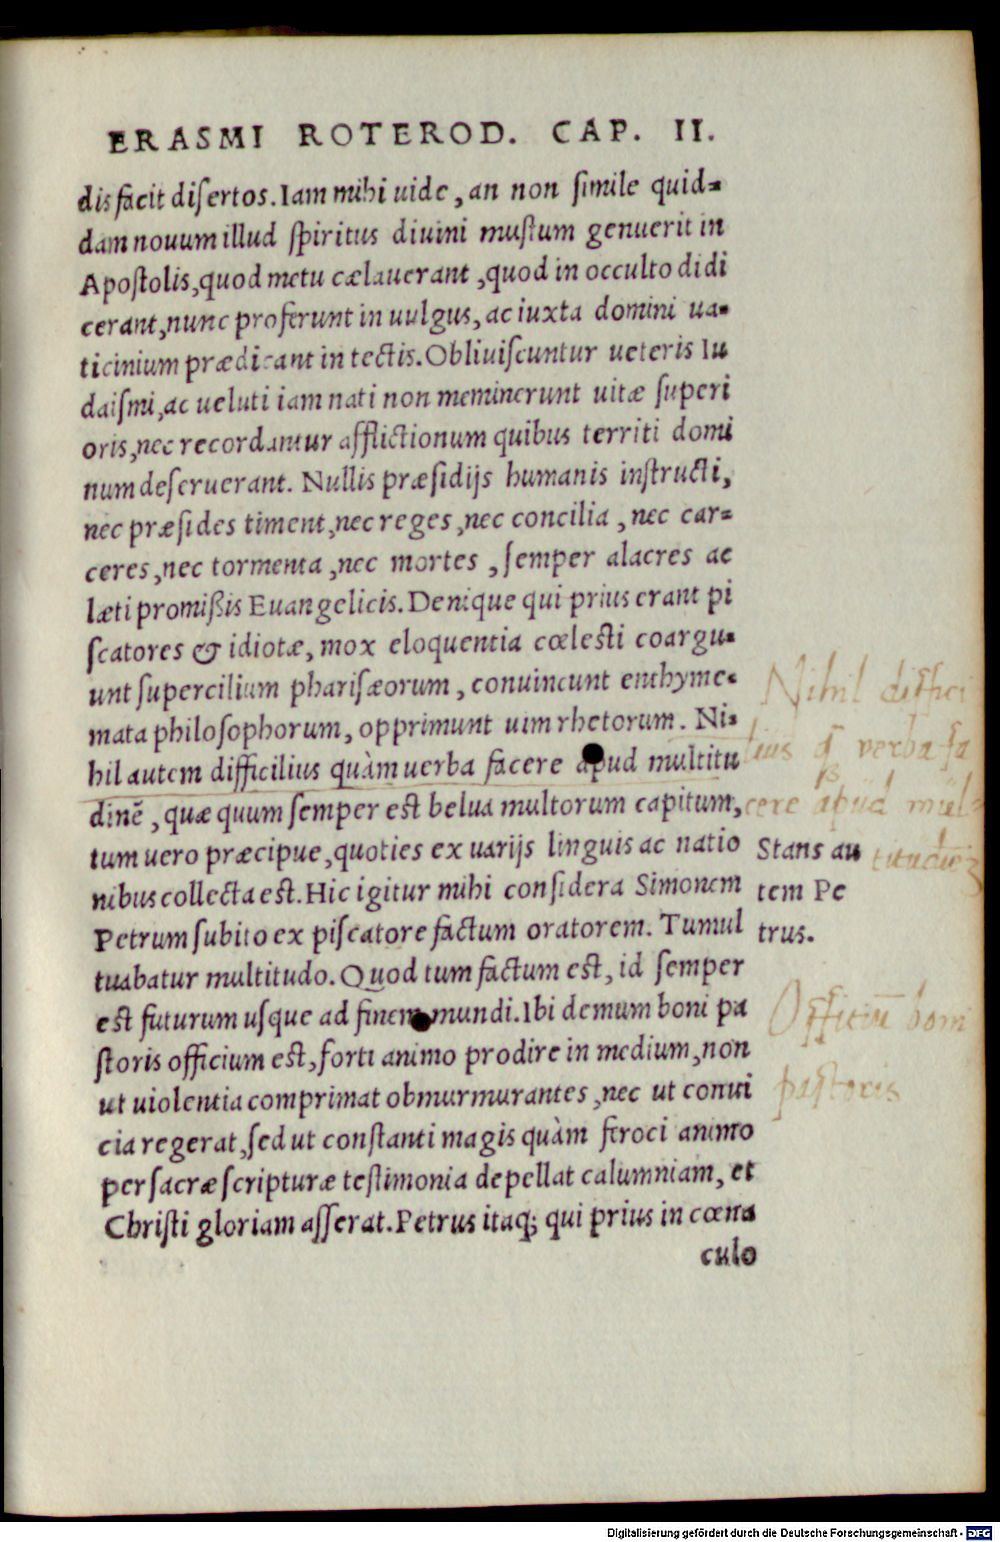 ERASMI ROTEROD. CAP. II.
dis facit diſertos. Iam mihi uide, an non ſimile quid-
dam nouum illud ſpiritus diuini muſtum genuerit in
Apoſtolis, quod metu cælauerant, quod in occulto didi
cerant, nunc proferunt in uulgus, ac iuxta domini ua-
ticinium prædicant in tectis. Obliuiſcuntur ueteris Iu
daiſmi, ac ueluti iam nati non meminerunt uitæ ſuperi
oris, nec recordantur afflictionum quibus territi domi
num deſeruerant. Nullis præſidijs humanis inſtructi,
nec præſides timent, nec reges, nec concilia, nec car-
ceres, nec tormenta, nec mortes, ſemper alacres ac
læti promiſſis Euangelicis. Denique qui prius erant pi
ſcatores & idiotæ, mox eloquentia cœleſti coargu-
unt ſupercilium phariſæorum, conuincunt enthyme-
mata philoſophorum, opprimunt uim rhetorum. Ni-
hil autem difficilius quàm uerba facere apud multitu
dinē, quæ quum ſemper eſt belua multorum capitum,
tum uero præcipue, quoties ex uarijs linguis ac natio
nibus collecta eſt. Hic igitur mihi conſidera Simonem
Petrum ſubito ex piſcatore factum oratorem. Tumul
tuabatur multitudo. Quod tum factum eſt, id ſemper
eſt futurum uſque ad finem mundi. Ibi demum boni pa
ſtoris officium eſt, forti animo prodire in medium, non
ut uiolentia comprimat obmurmurantes, nec ut conui
cia regerat, ſed ut conſtanti magis quàm feroci animo
per ſacræ ſcripturæ teſtimonia depellat calumniam, et
Chriſti gloriam aſſerat. Petrus itaq; qui prius in cœna
culo
Nihil diffici
lius q̃ verba fa
cere apud mul-
titudinē
Stans au
tem Pe
trus.
Officiū boni
paſtoris
Digitalisierung gefördert durch die Deutsche Forschungsgemeinschaft - DFG